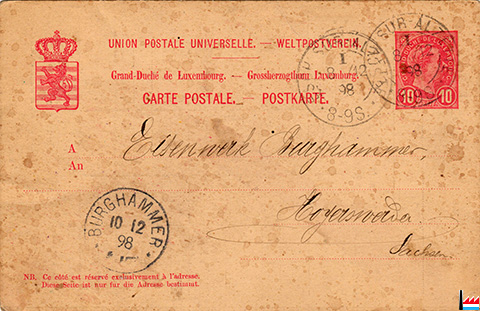 UNION POSTALE UNIVERSELLE. — WELTPOSTVEREIN.
Grand-Duché de Luxembourg. — Grossherzogthum Luxemburg.
CARTE POSTALE. — POSTKARTE.
1
98
8-9S.
SUR ALZ
10 10
A
An
Eisenwerk Burghammer,
Sachsen
BURGHAMMER
10 12
98
NB. Ce côté est réservé exclusivement à l'adresse.
Diese Seite ist nur für die Adresse bestimmt.